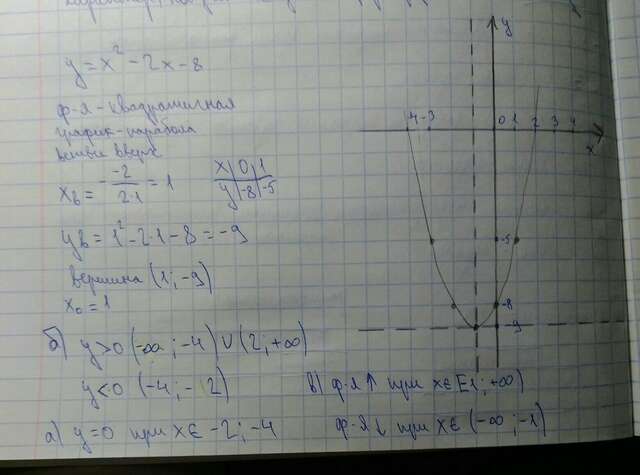 y = x² - 2x - 8
ф-я - квадратичная
график - парабола
ветви вверх
x_в = - -2/2·1 = 1
x | 0 | 1
y | -8 | -5
y_в = 1² - 2·1 - 8 = -9
вершина (1; -9)
x₀ = 1
б) y>0 (-∞; -4) ∪ (2; +∞)
y<0 (-4; -2)
в) ф-я ↑ при x∈[-1; +∞)
а) y=0 при x∈ -2; -4
ф-я ↓ при x∈ (-∞; -1)
y
-4 -3 0 1 2 3 4
x
-5
-8
-9